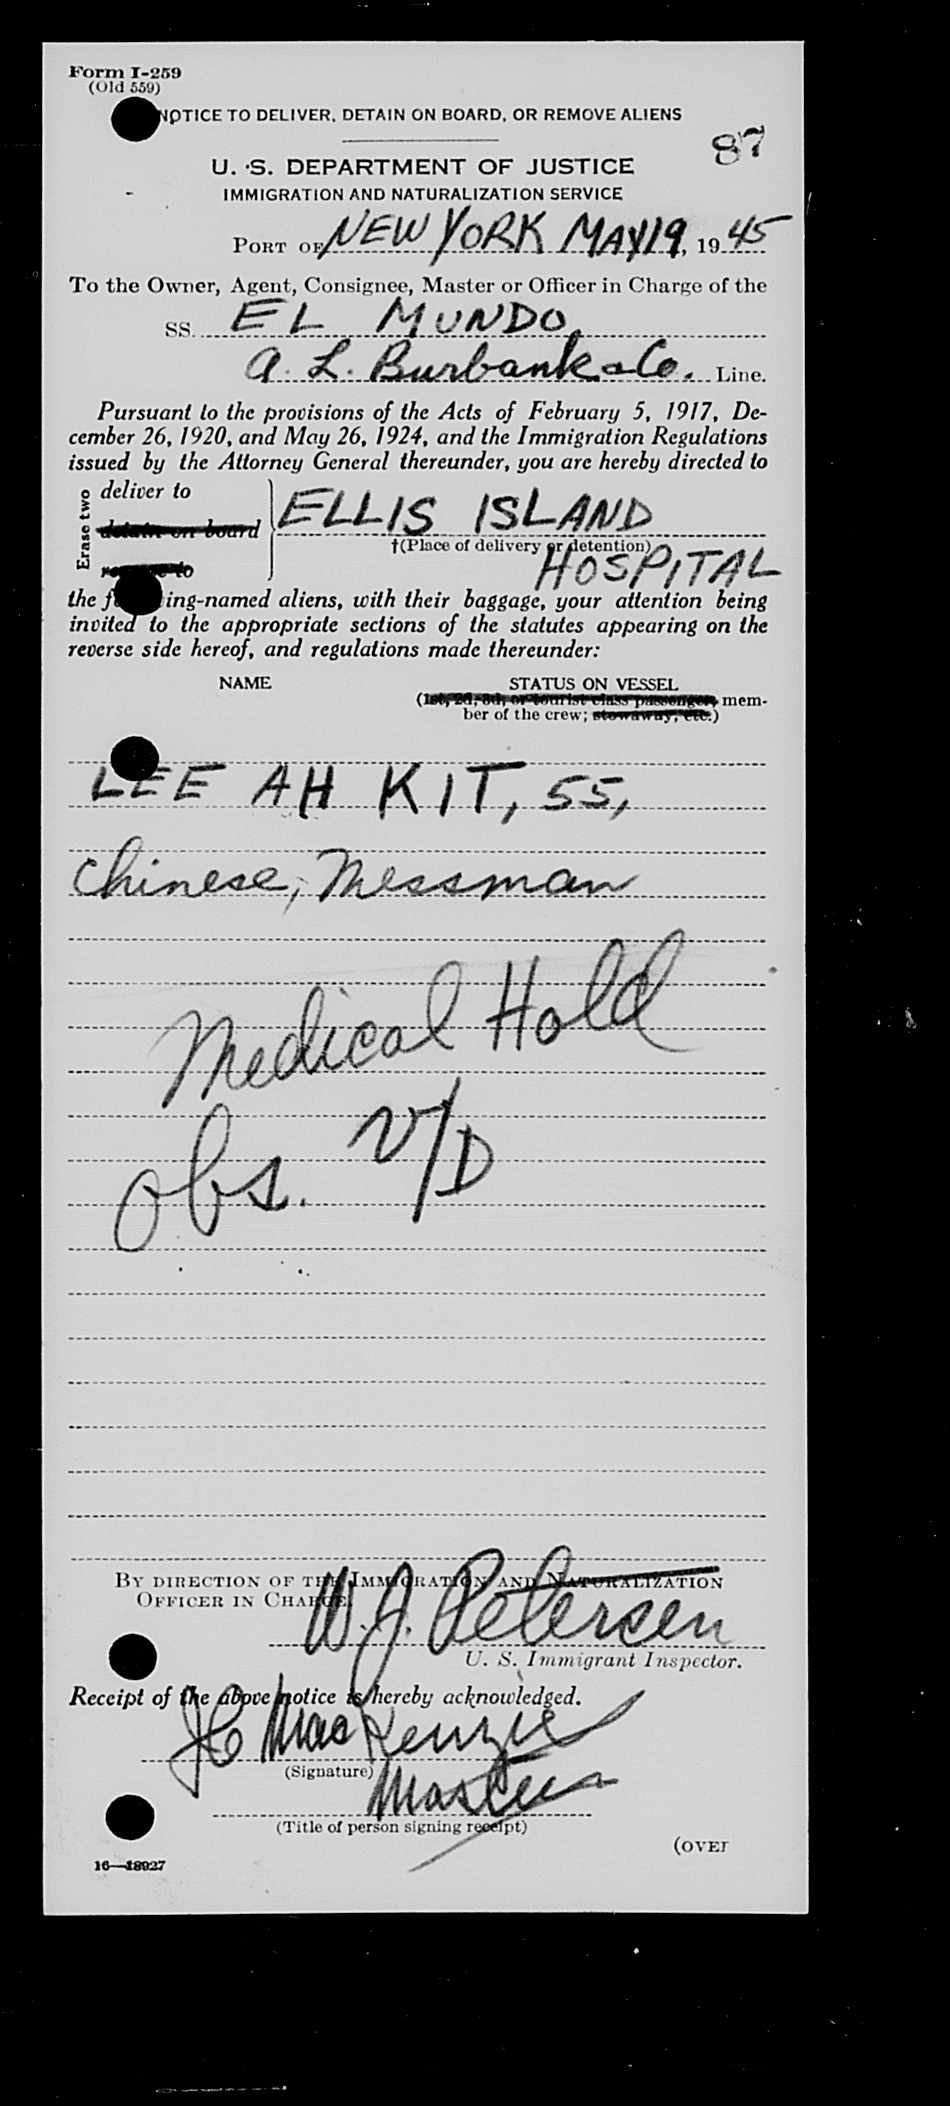 Form I-259
(Old 559)
NOTICE TO DELIVER, DETAIN ON BOARD, OR REMOVE ALIENS
87
U. S. DEPARTMENT OF JUSTICE
IMMIGRATION AND NATURALIZATION SERVICE
PORT OF NEW YORK MAY 19, 1945
To the Owner, Agent, Consignee, Master or Officer in Charge of the
SS. EL MUNDO,
A. L. Burbank & Co. Line.
Pursuant to the provisions of the Acts of February 5, 1917, De-
cember 26, 1920, and May 26, 1924, and the Immigration Regulations
issued by the Attorney General thereunder, you are hereby directed to
Erase two
deliver to
detain on board
remove to
ELLIS ISLAND
†(Place of delivery or detention)
HOSPITAL
the following-named aliens, with their baggage, your attention being
invited to the appropriate sections of the statutes appearing on the
reverse side hereof, and regulations made thereunder:
NAME STATUS ON VESSEL
(1st, 2d, 3d, or tourist class passenger, mem-
ber of the crew; stowaway, etc.)
LEE AH KIT, 55,
Chinese, Messman
Medical Hold
Obs. V/D
BY DIRECTION OF THE IMMIGRATION AND NATURALIZATION
OFFICER IN CHARGE:
W. J. Petersen
U. S. Immigrant Inspector.
Receipt of the above notice is hereby acknowledged.
MacKenzie
(Signature)
Master
(Title of person signing receipt)
(OVER
16—18927